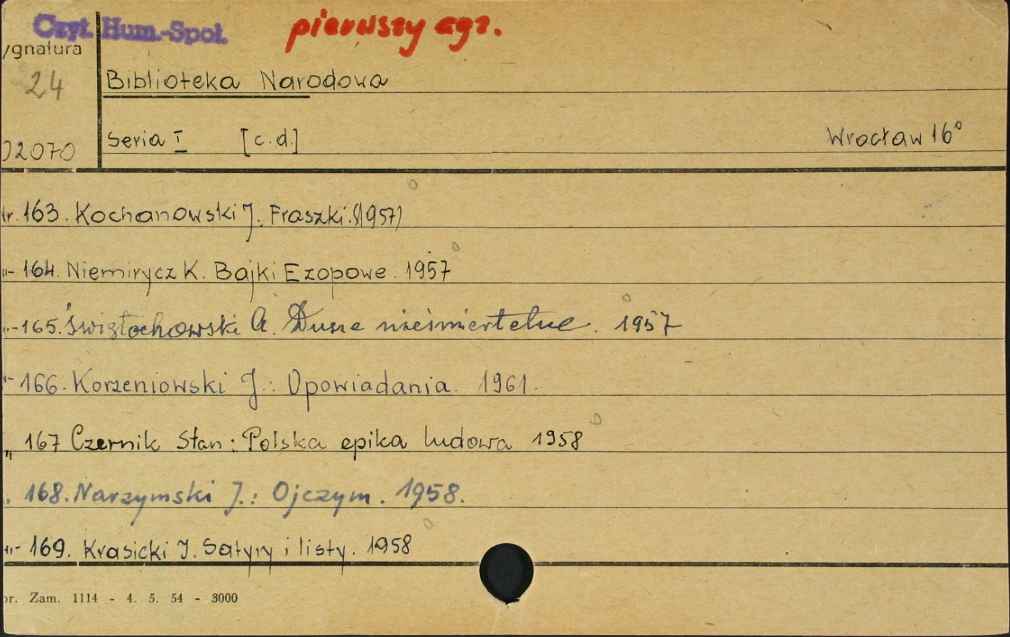 Czyt. Hum.-Społ. pierwszy egz.
ygnatura
24 Biblioteka Narodowa
02070 Seria I [c.d.] Wrocław 16°
nr. 163. Kochanowski J. Fraszki.(1957)
-"- 164. Niemirycz K. Bajki Ezopowe. 1957
-"- 165. Świętochowski A. Dusze nieśmiertelne. 1957
-"- 166. Korzeniowski J.: Opowiadania. 1961.
" 167 Czernik Stan: Polska epika ludowa 1958
" 168. Narzymski J.: Ojczym. 1958.
-"- 169. Krasicki I. Satyry i listy. 1958
or. Zam. 1114 - 4. 5. 54 - 3000